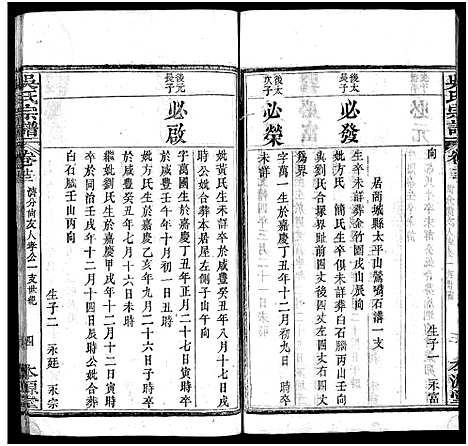 吳氏宗譜
卷廿三
向
生子一 永富
居商城縣太平山鶯嘴石溝一支
後太長子
必發
生卒未詳葬金竹園戌山辰向
妣方氏 簡氏生卒俱未詳葬白石腦丙山壬向
與劉氏合塚界址直四丈後橫四丈劉以田角
為界
後太次子
必榮
字萬一生於嘉慶丁丑年十二月初九日時
未詳
後元長子
必啟
字萬國生於嘉慶丁丑年正月二十七日寅時卒
於咸豐壬子年十月初一日丑時
妣黃氏生年未詳卒於咸豐癸丑年八月十六日戌
時公妣合葬本居屋左側子山午向
妣方氏生於嘉慶乙亥年九月二十六日子時卒
於咸豐癸丑年七月十六日未時
繼妣劉氏生於嘉慶甲戌年十二月十二日戌時
卒於同治壬戌年十二月十四日辰時公妣合葬
白石腦壬山丙向
生子二 永廷 永宗
吳氏宗譜
卷廿三
濟分向友人孝公一支世紀
四
本源堂